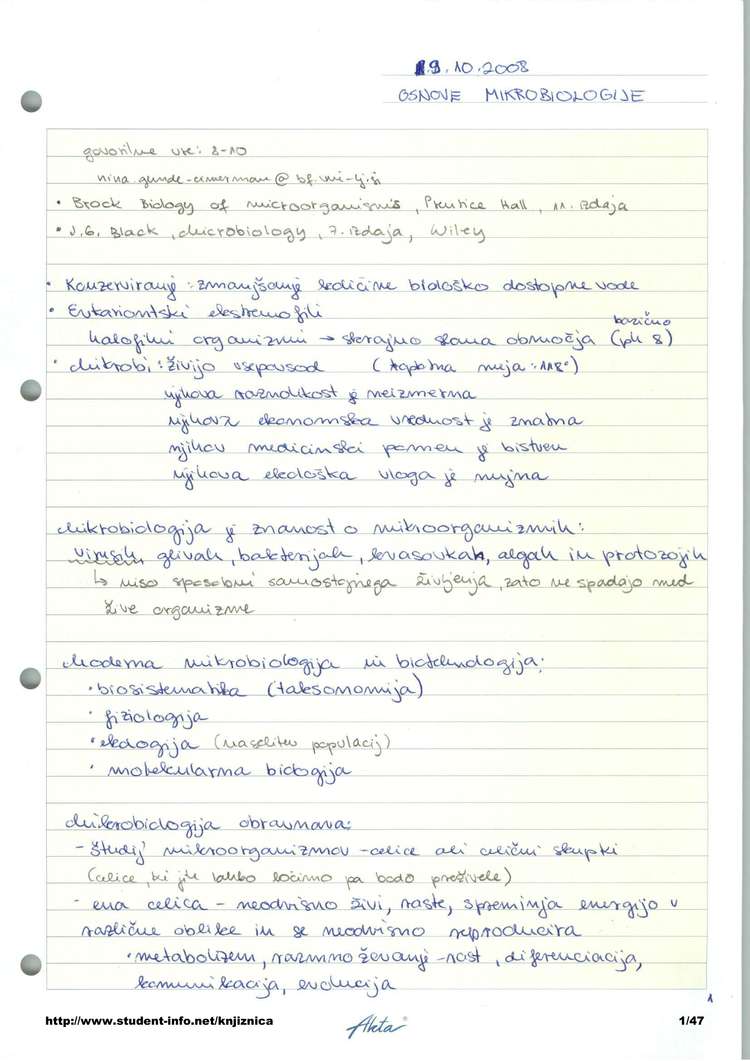 9.10.2008
OSNOVE MIKROBIOLOGIJE
govorilne ure: 8-10
nina.gunde-cimerman@bf.uni-lj.si
• Brock Biology of microorganisms, Prentice Hall, 11. izdaja
• J.G. Black, Microbiology, 7. izdaja, Wiley
• Konzerviranje: zmanjšanje količine biološko dostopne vode
• Evkariontski ekstremofili
bazično
halofilni organizmi → skrajno slana območja (ph 8)
• Mikrobi: živijo vsepovsod (toplotna meja: 118°)
njihova raznolikost je neizmerna
njihova ekonomska vrednost je znatna
njihov medicinski pomen je bistven
njihova ekološka vloga je nujna
Mikrobiologija je znanost o mikroorganizmih:
virusih, glivah, bakterijah, kvasovkah, algah in protozojih
↳ niso sposobni samostojnega življenja, zato ne spadajo med
žive organizme
Moderna mikrobiologija in biotehnologija:
• biosistematika (taksonomija)
• fiziologija
• ekologija (naselitev populacij)
• molekularna biologija
Mikrobiologija obravnava:
- študij mikroorganizmov - celice ali celični skupki
(celice, ki jih lahko ločimo pa bodo preživele)
- ena celica - neodvisno živi, raste, spreminja energijo v
različne oblike in se neodvisno reproducira
• metabolizem, razmnoževanje-rast, diferenciacija,
komunikacija, evolucija
1
http://www.student-info.net/knjiznica
Akta
1/47